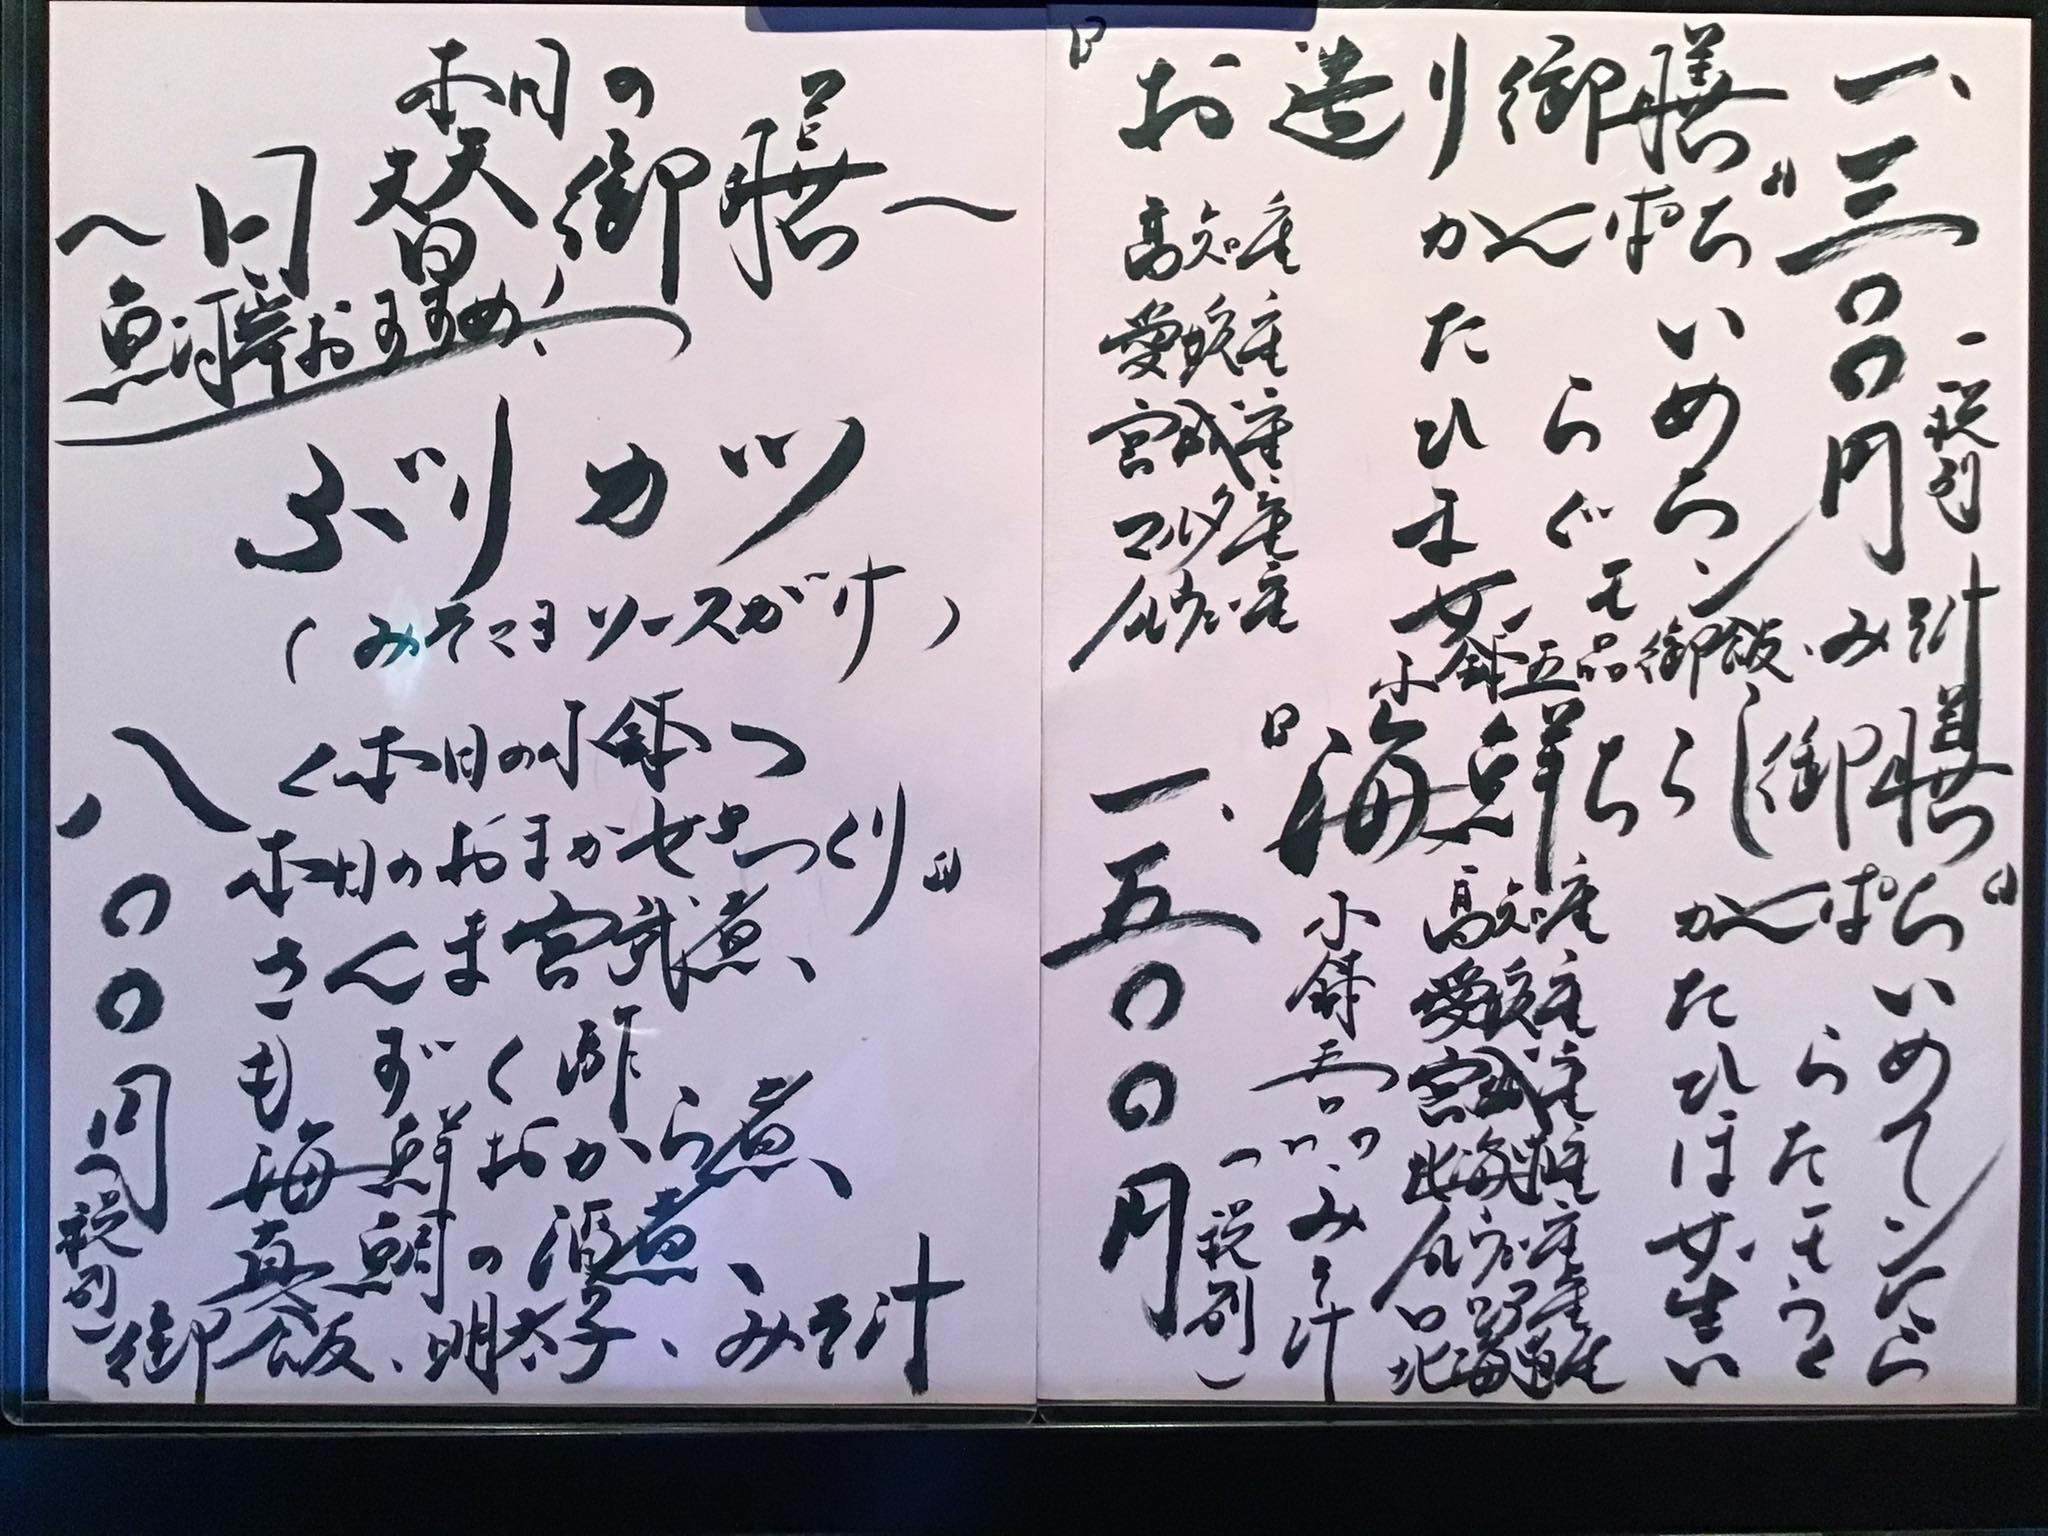 本日の
〜日替御膳〜
おすすめ
ぶりカツ
(みそマヨソースがけ)
<本日の小鉢>
本日のおまかせ三点つくり
さんま宮武煮、
もずく酢
海鮮おから煮、
真鯛の酒煮、
御飯、明太子、みそ汁
八〇〇円(税別)
『お造り御膳』
高知産 かんぱち
愛媛産 たい
宮城産 ひらめ
マルタ産 まぐろ
小鉢五品、御飯、みそ汁
一、三〇〇円(税別)
『海鮮ちらし御膳』
高知産 かんぱち
愛媛産 たい
宮城産 ひらめ
北海道産 ほたて
北海道産 いくら
小鉢五品、みそ汁
一、五〇〇円(税別)